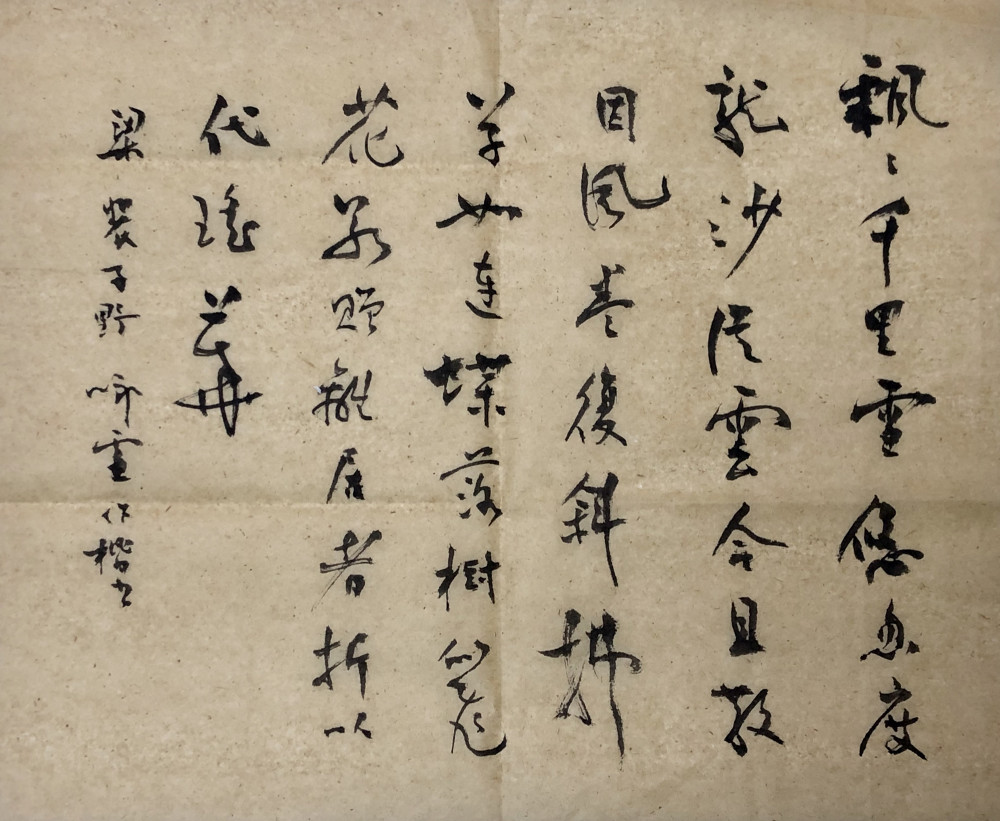 飄〻千里雪悠忽度
龍沙從雲合且散
因風卷復斜拂
草如連蝶落樹似飛
花若贈離居者折以
代瑤華
梁裴子野咏雪作楷书